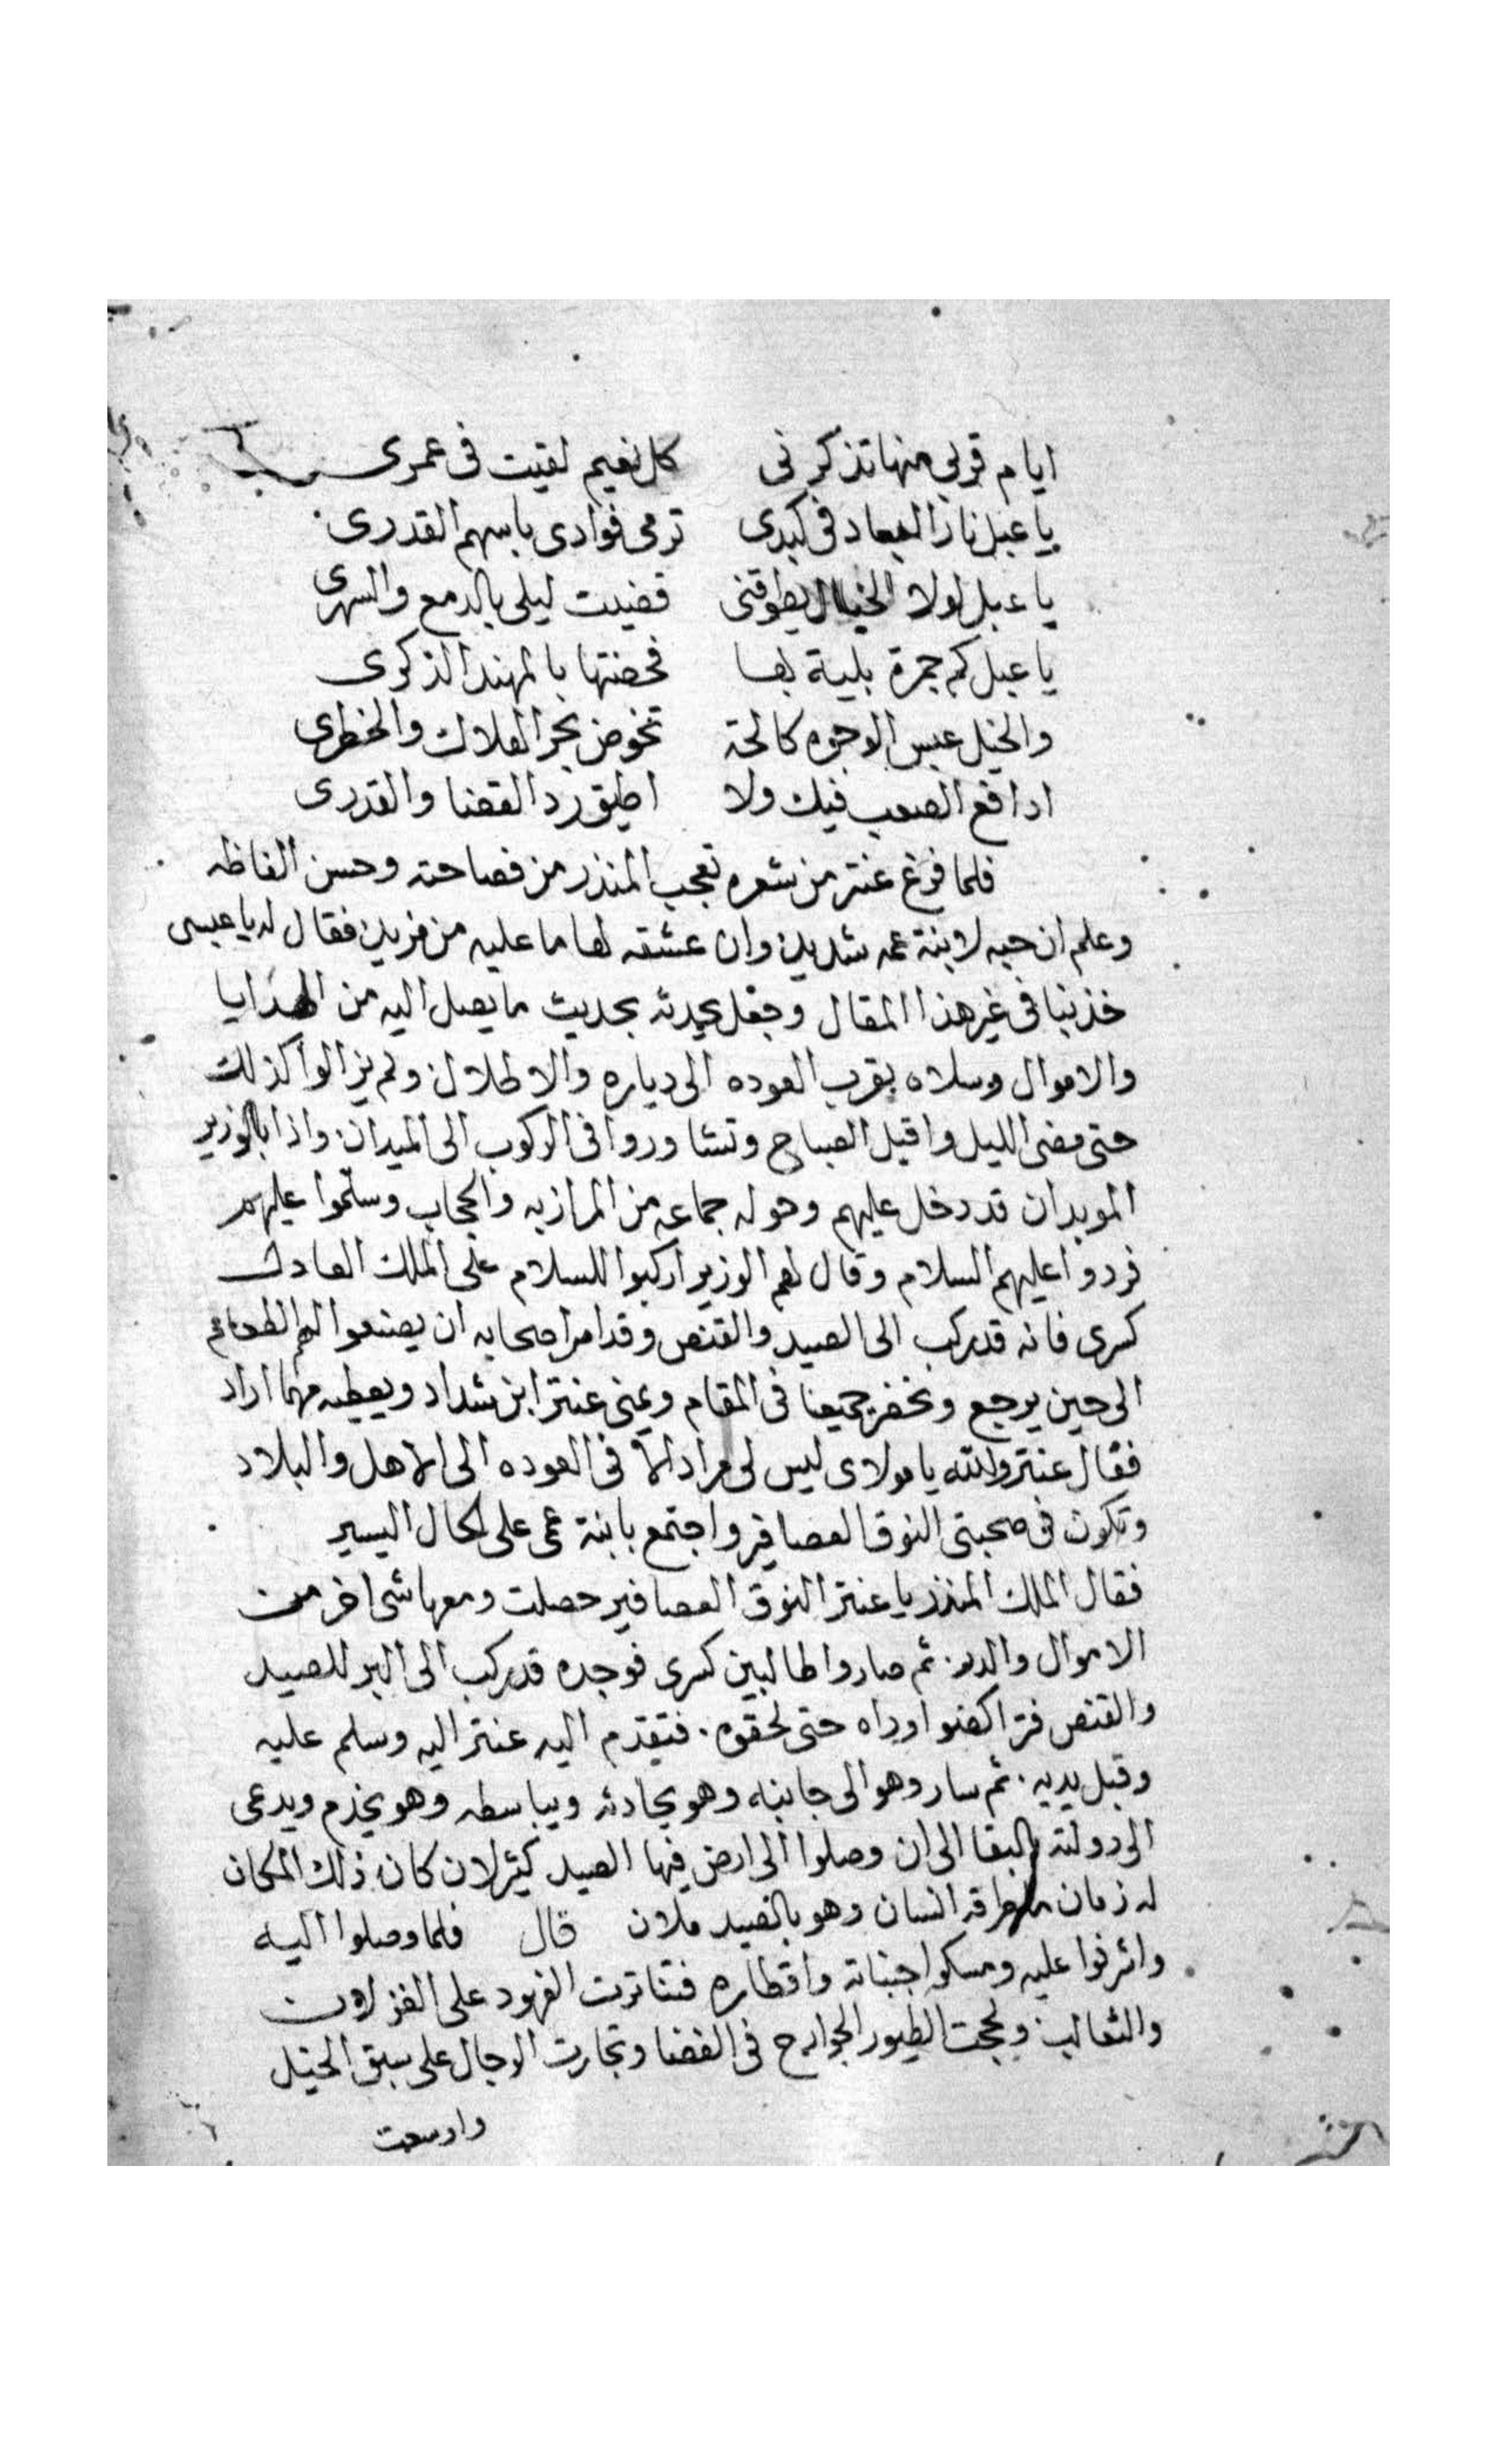 ايام قربى منها تذكرنى كل نعيم لقيت فى عمرى
يا عبل نار البعاد فى كبدى ترمى فوادى باسهم القدرى
يا عبل لولا الخيال يطرقنى قضيت ليلى بالدمع والسهرى
يا عبل كم جمرة بليت بها فخضتها بالمهند الذكرى
والخيل عبس الوجوه كالحة تخوض بحر الهلاك والخطرى
ادافع الصعب فيك ولا اطيق رد القضا والقدرى
فلما فرغ عنتر من شعره تعجب المنذر من فصاحته وحسن الفاظه
وعلم ان حبه لابنة عمه شديد وان عشقه لها ما عليه من مزيد فقال له يا عبسى
خذ بنا فى غير هذا المقال وجعل يحدثه بحديث ما يصل اليه من الهدايا
والاموال وسلاه بقرب العوده الى دياره والاطلال ولم يزالوا كذلك
حتى مضى الليل واقبل الصباح وتشاوروا فى الركوب الى الميدان واذا بالوزير
الموبدان قد دخل عليهم وحوله جماعه من المرازبه والحجاب وسلموا عليهم
فردوا عليهم السلام وقال لهم الوزير اركبوا للسلام على الملك العادل
كسرى فانه قد ركب الى الصيد والقنص وقد امر اصحابه ان يصنعوا لهم الطعام
الى حين يرجع ونحضر جميعنا فى المقام ويمنى عنتر ابن شداد ويعطيه مهما اراد
فقال عنتر والله يا مولاى ليس لى مراد الا فى العوده الى الاهل والبلاد
وتكون فى صحبتى النوق العصافير واجتمع بابنة عمى على الحال اليسير
فقال الملك المنذر يا عنتر النوق العصافير حصلت ومعها شى اخر من
الاموال والدر ثم صاروا طالبين كسرى فوجده قد ركب الى البر للصيد
والقنص فتراكضوا وراه حتى لحقوه. فتقدم اليه عنتر اليه وسلم عليه
وقبل يديه. ثم سار وهو الى جانبه وهو يحادثه ويباسطه وهو يخدم ويدعى
الى دولته بالبقا الى ان وصلوا الى ارض فيها الصيد كثير لان كان ذلك المكان
له زمان ما طرقه انسان وهو بالصيد ملان قال فلما وصلوا اليه
واشرفوا عليه ومسكوا جنباته واقطاره فتناترت الفهود على الغزلان
والثعالب ولججت الطيور الجوارح فى الفضا وتجارت الرجال على سبق الخيل
واوسعت